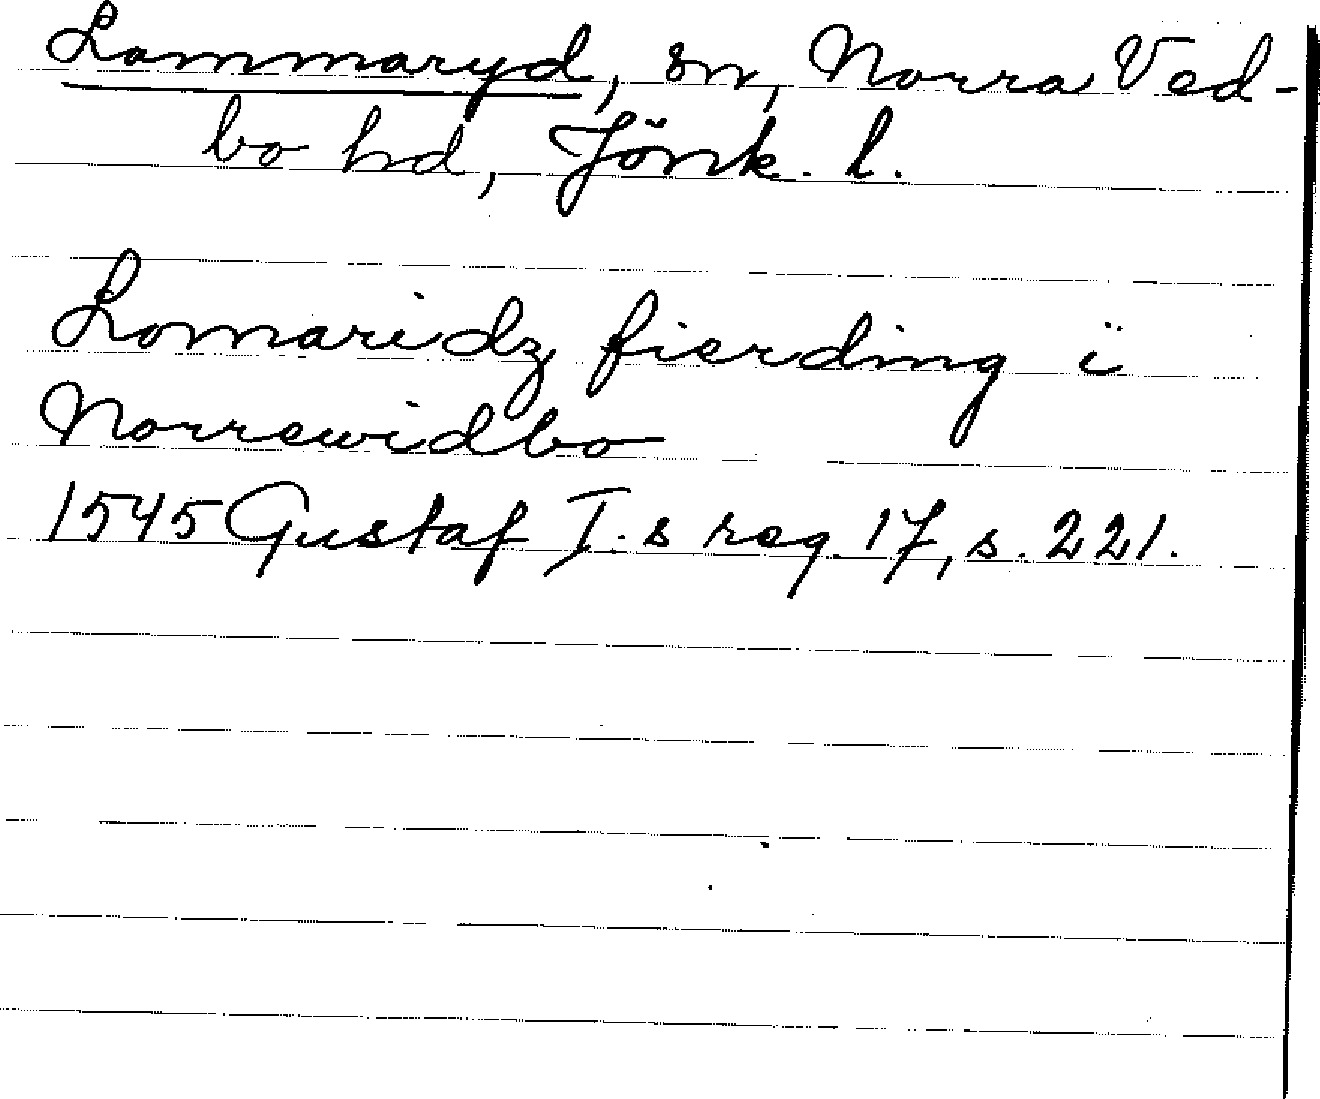 Lommaryd, sn, Norra Ved-
bo hd, Jönk. l.
Lomaridz fierding i
Norrewidbo
1545 Gustaf I.s reg. 17, s. 221.